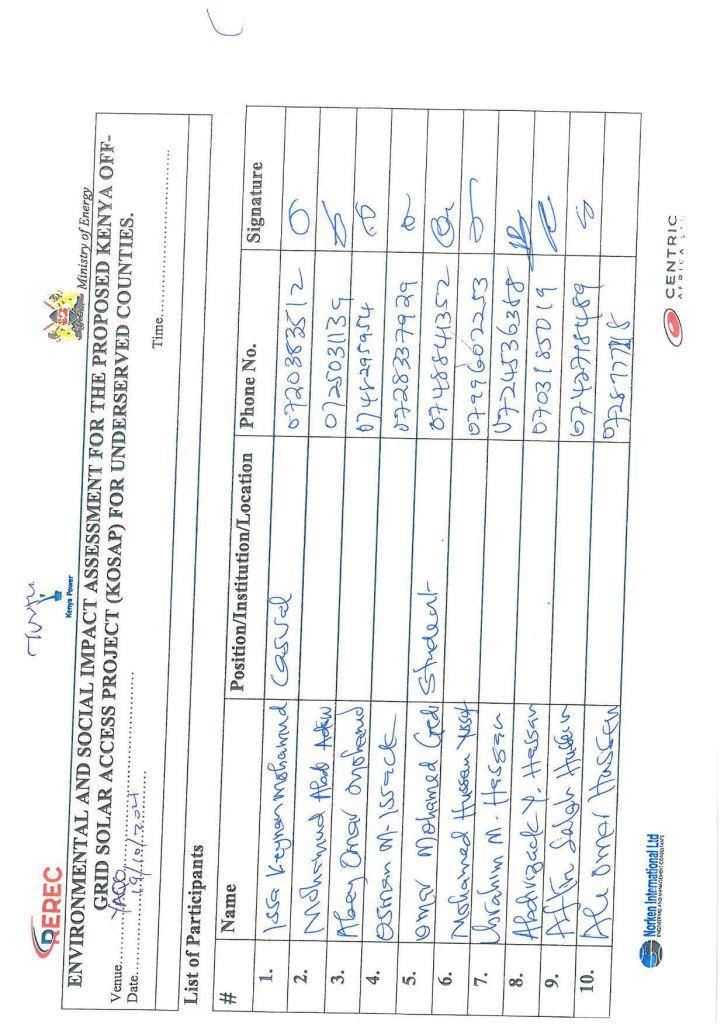 REREC
Kenya Power
Ministry of Energy
ENVIRONMENTAL AND SOCIAL IMPACT ASSESSMENT FOR THE PROPOSED KENYA OFF-
GRID SOLAR ACCESS PROJECT (KOSAP) FOR UNDERSERVED COUNTIES.
Venue
Date 19/10/2021
Time
List of Participants
# Name Position/Institution/Location Phone No. Signature
1. Issa Keynan Mohamud Casual 0720383512
2. Mohamud Abdi Aden 0725031139
3. Abey Omar Mohamed 0742295954
4. Osman M. Issack 0728337929
5. Omar Mohamed Gedi Student 0748841352
6. Mohamed Hussan Yssuf 0799602253
7. Ibrahim M. Hassan 0724536388
8. Abdirizack Y. Hassan 0703185019
9. Salah Hussein 0742798489
10. Ali Omar Hussein
Norken International Ltd
ENGINEERING AND MANAGEMENT CONSULTANTS
CENTRIC
AFRICA LTD